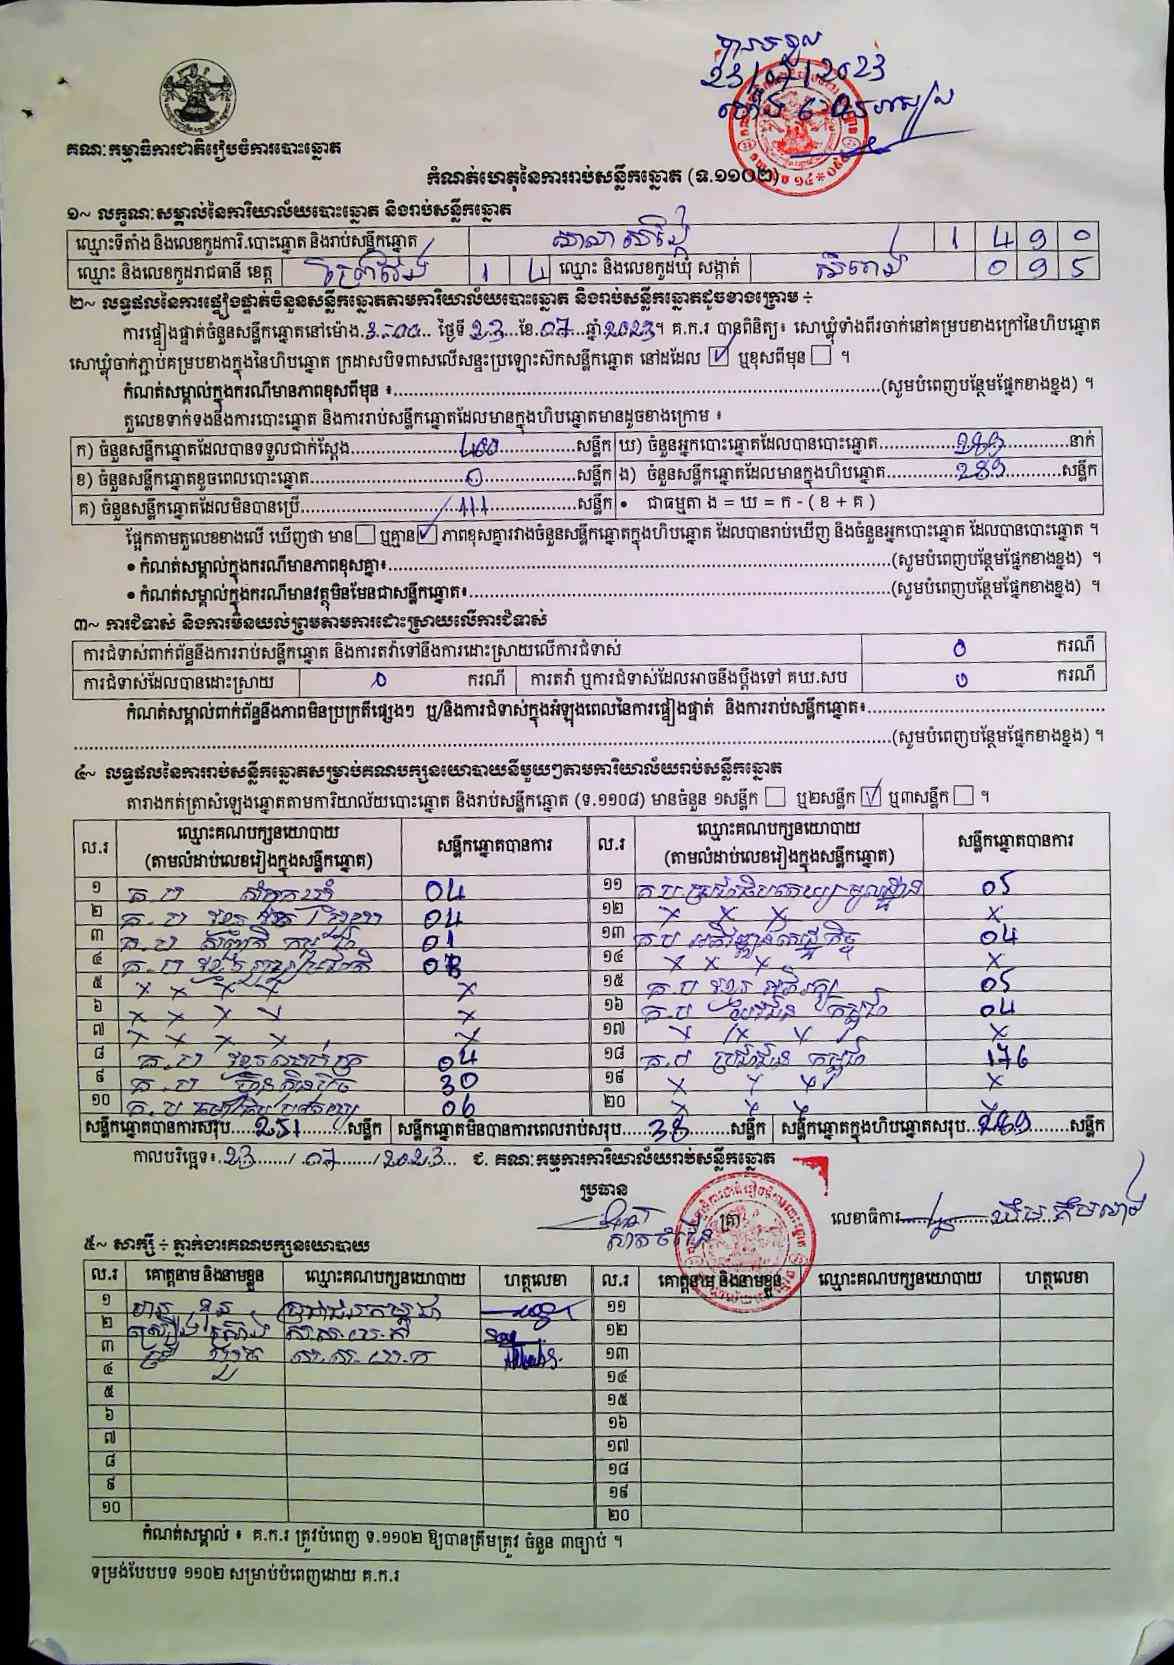 23/07/2023
គណៈកម្មាធិការជាតិរៀបចំការបោះឆ្នោត
កំណត់ហេតុនៃការរាប់សន្លឹកឆ្នោត (ទ.១១០២)
១~ លក្ខណៈសម្គាល់នៃការិយាល័យបោះឆ្នោត និងរាប់សន្លឹកឆ្នោត
ឈ្មោះទីតាំង និងលេខកូដការិ.បោះឆ្នោត និងរាប់សន្លឹកឆ្នោត 1 4 9 0
ឈ្មោះ និងលេខកូដរាជធានី ខេត្ត ព្រៃវែង 1 4 ឈ្មោះ និងលេខកូដឃុំ សង្កាត់ 0 9 5
២~ លទ្ធផលនៃការផ្ទៀងផ្ទាត់ចំនួនសន្លឹកឆ្នោតតាមការិយាល័យបោះឆ្នោត និងរាប់សន្លឹកឆ្នោតដូចខាងក្រោម ÷
ការផ្ទៀងផ្ទាត់ចំនួនសន្លឹកឆ្នោតនៅម៉ោង.3-00... ថ្ងៃទី.23...ខែ.07...ឆ្នាំ2023។ គ.ក.រ បានពិនិត្យ៖ សោឃ្លុំទាំងពីរចាក់នៅគម្របខាងក្រៅនៃហិបឆ្នោត
សោឃ្លុំចាក់ភ្ជាប់គម្របខាងក្នុងនៃហិបឆ្នោត ក្រដាសបិទពាសលើសន្ទះប្រឡោះស៊កសន្លឹកឆ្នោត នៅដដែល ☑ ឬខុសពីមុន ☐ ។
កំណត់សម្គាល់ក្នុងករណីមានភាពខុសពីមុន ៖..........(សូមបំពេញបន្ថែមផ្នែកខាងខ្នង) ។
តួលេខទាក់ទងនឹងការបោះឆ្នោត និងការរាប់សន្លឹកឆ្នោតដែលមានក្នុងហិបឆ្នោតមានដូចខាងក្រោម ៖
ក) ចំនួនសន្លឹកឆ្នោតដែលបានទទួលជាក់ស្តែង.....400.....សន្លឹក ឃ) ចំនួនអ្នកបោះឆ្នោតដែលបានបោះឆ្នោត.....289.....នាក់
ខ) ចំនួនសន្លឹកឆ្នោតខូចពេលបោះឆ្នោត.....0.....សន្លឹក ង) ចំនួនសន្លឹកឆ្នោតដែលមានក្នុងហិបឆ្នោត.....289.....សន្លឹក
គ) ចំនួនសន្លឹកឆ្នោតដែលមិនបានប្រើ.....111.....សន្លឹក • ជាធម្មតា ង = ឃ = ក - ( ខ + គ )
ផ្អែកតាមតួលេខខាងលើ ឃើញថា មាន ☐ ឬគ្មាន ☑ ភាពខុសគ្នារវាងចំនួនសន្លឹកឆ្នោតក្នុងហិបឆ្នោត ដែលបានរាប់ឃើញ និងចំនួនអ្នកបោះឆ្នោត ដែលបានបោះឆ្នោត ។
• កំណត់សម្គាល់ក្នុងករណីមានភាពខុសគ្នា៖..........(សូមបំពេញបន្ថែមផ្នែកខាងខ្នង) ។
• កំណត់សម្គាល់ក្នុងករណីមានវត្ថុមិនមែនជាសន្លឹកឆ្នោត៖..........(សូមបំពេញបន្ថែមផ្នែកខាងខ្នង) ។
៣~ ការជំទាស់ និងការមិនយល់ព្រមតាមការដោះស្រាយលើការជំទាស់
ការជំទាស់ពាក់ព័ន្ធនឹងការរាប់សន្លឹកឆ្នោត និងការតវ៉ាទៅនឹងការដោះស្រាយលើការជំទាស់ 0 ករណី
ការជំទាស់ដែលបានដោះស្រាយ 0 ករណី ការតវ៉ា ឬការជំទាស់ដែលអាចនឹងប្តឹងទៅ គឃ.សប 0 ករណី
កំណត់សម្គាល់ពាក់ព័ន្ធនឹងភាពមិនប្រក្រតីផ្សេងៗ ឬ/និងការជំទាស់ក្នុងអំឡុងពេលនៃការផ្ទៀងផ្ទាត់ និងការរាប់សន្លឹកឆ្នោត៖..........
..........(សូមបំពេញបន្ថែមផ្នែកខាងខ្នង) ។
៤~ លទ្ធផលនៃការរាប់សន្លឹកឆ្នោតសម្រាប់គណបក្សនយោបាយនីមួយៗតាមការិយាល័យរាប់សន្លឹកឆ្នោត
តារាងកត់ត្រាសំឡេងឆ្នោតតាមការិយាល័យបោះឆ្នោត និងរាប់សន្លឹកឆ្នោត (ទ.១១០៨) មានចំនួន ១សន្លឹក ☐ ឬ២សន្លឹក ☑ ឬ៣សន្លឹក ☐ ។
ល.រ ឈ្មោះគណបក្សនយោបាយ (តាមលំដាប់លេខរៀងក្នុងសន្លឹកឆ្នោត) សន្លឹកឆ្នោតបានការ ល.រ ឈ្មោះគណបក្សនយោបាយ (តាមលំដាប់លេខរៀងក្នុងសន្លឹកឆ្នោត) សន្លឹកឆ្នោតបានការ
១ គ.ប 04 ១១ គ.ប ប្រជាធិបតេយ្យមូលដ្ឋាន 05
២ គ.ប 04 ១២ x x x x
៣ គ.ប 01 ១៣ គ.ប 04
៤ គ.ប 08 ១៤ x x x x
៥ x x x x x ១៥ គ.ប 05
៦ x x x x x ១៦ គ.ប កម្ពុជា 04
៧ x x x x x ១៧ x x x x x
៨ គ.ប 04 ១៨ គ.ប ប្រជាជន កម្ពុជា 176
៩ គ.ប ហ៊្វុនស៊ិនប៉ិច 30 ១៩ x x x x
១០ គ.ប 06 ២០ x x x x
សន្លឹកឆ្នោតបានការសរុប.....251.....សន្លឹក សន្លឹកឆ្នោតមិនបានការពេលរាប់សរុប.....38.....សន្លឹក សន្លឹកឆ្នោតក្នុងហិបឆ្នោតសរុប...289.....សន្លឹក
កាលបរិច្ឆេទ៖.23....../.07....../.2023... ជ. គណៈកម្មការការិយាល័យរាប់សន្លឹកឆ្នោត
ប្រធាន
ត្រា
លេខាធិការ
៥~ សាក្សី ÷ ភ្នាក់ងារគណបក្សនយោបាយ
ល.រ គោត្តនាម និងនាមខ្លួន ឈ្មោះគណបក្សនយោបាយ ហត្ថលេខា ល.រ គោត្តនាម និងនាមខ្លួន ឈ្មោះគណបក្សនយោបាយ ហត្ថលេខា
១ ប្រជាជនកម្ពុជា ១១
២ ស.ស.យ.ក ១២
៣ ស.ស.យ.ក ១៣
៤ ១៤
៥ ១៥
៦ ១៦
៧ ១៧
៨ ១៨
៩ ១៩
១០ ២០
កំណត់សម្គាល់ ៖ គ.ក.រ ត្រូវបំពេញ ទ.១១០២ ឱ្យបានត្រឹមត្រូវ ចំនួន ៣ច្បាប់ ។
ទម្រង់បែបបទ ១១០២ សម្រាប់បំពេញដោយ គ.ក.រ